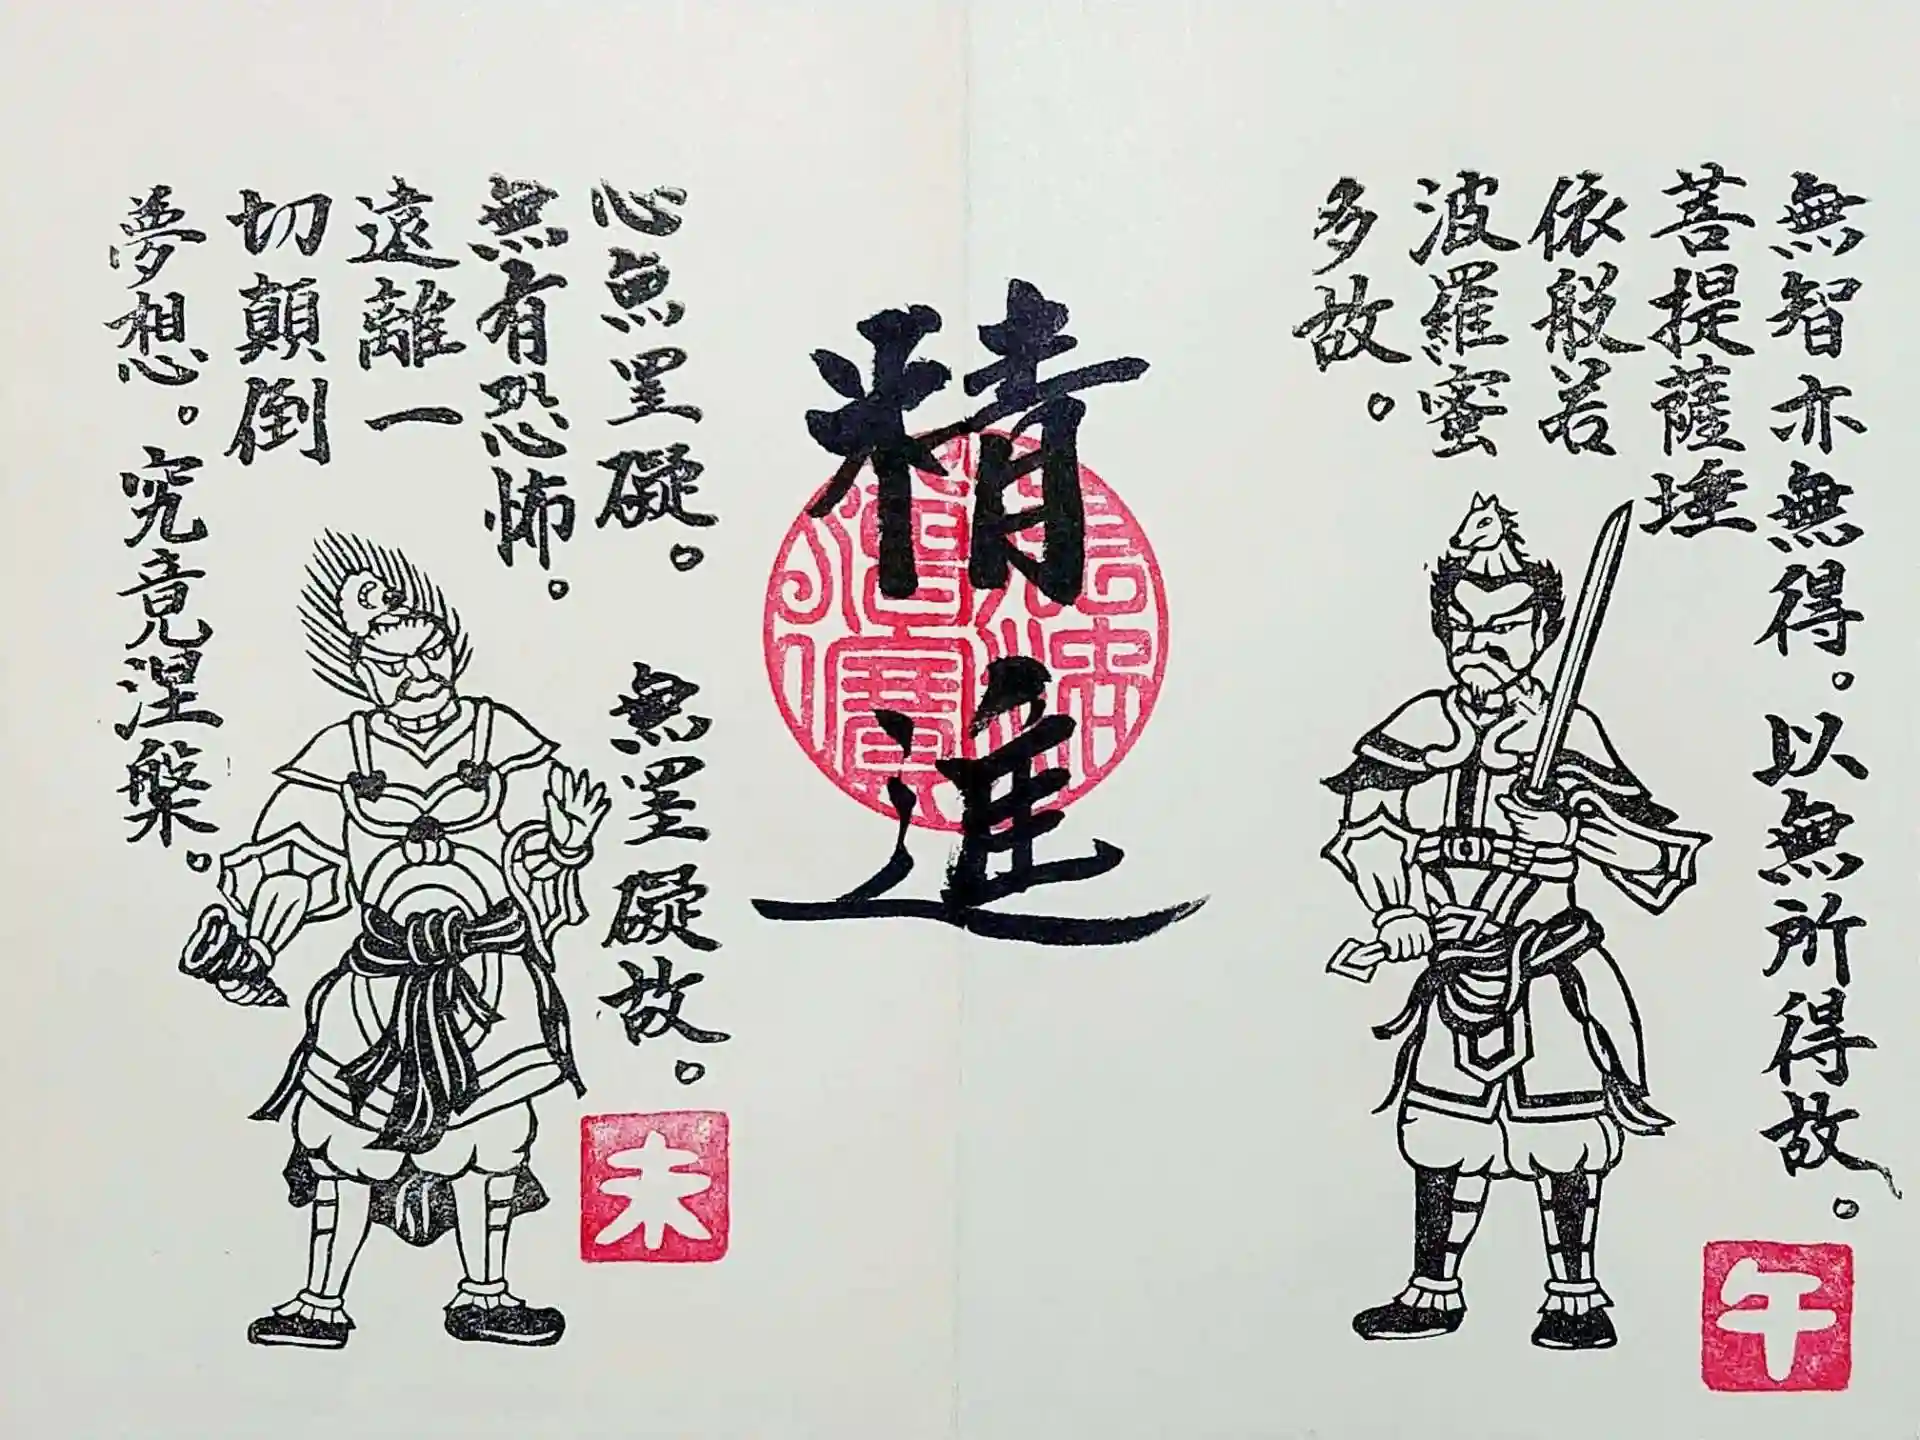 無智亦無得。以無所得故。
菩提薩埵
依般若
波羅蜜
多故。
午
精進
心無罣礙。無罣礙故。
無有恐怖。
遠離一
切顛倒
夢想。究竟涅槃。
未